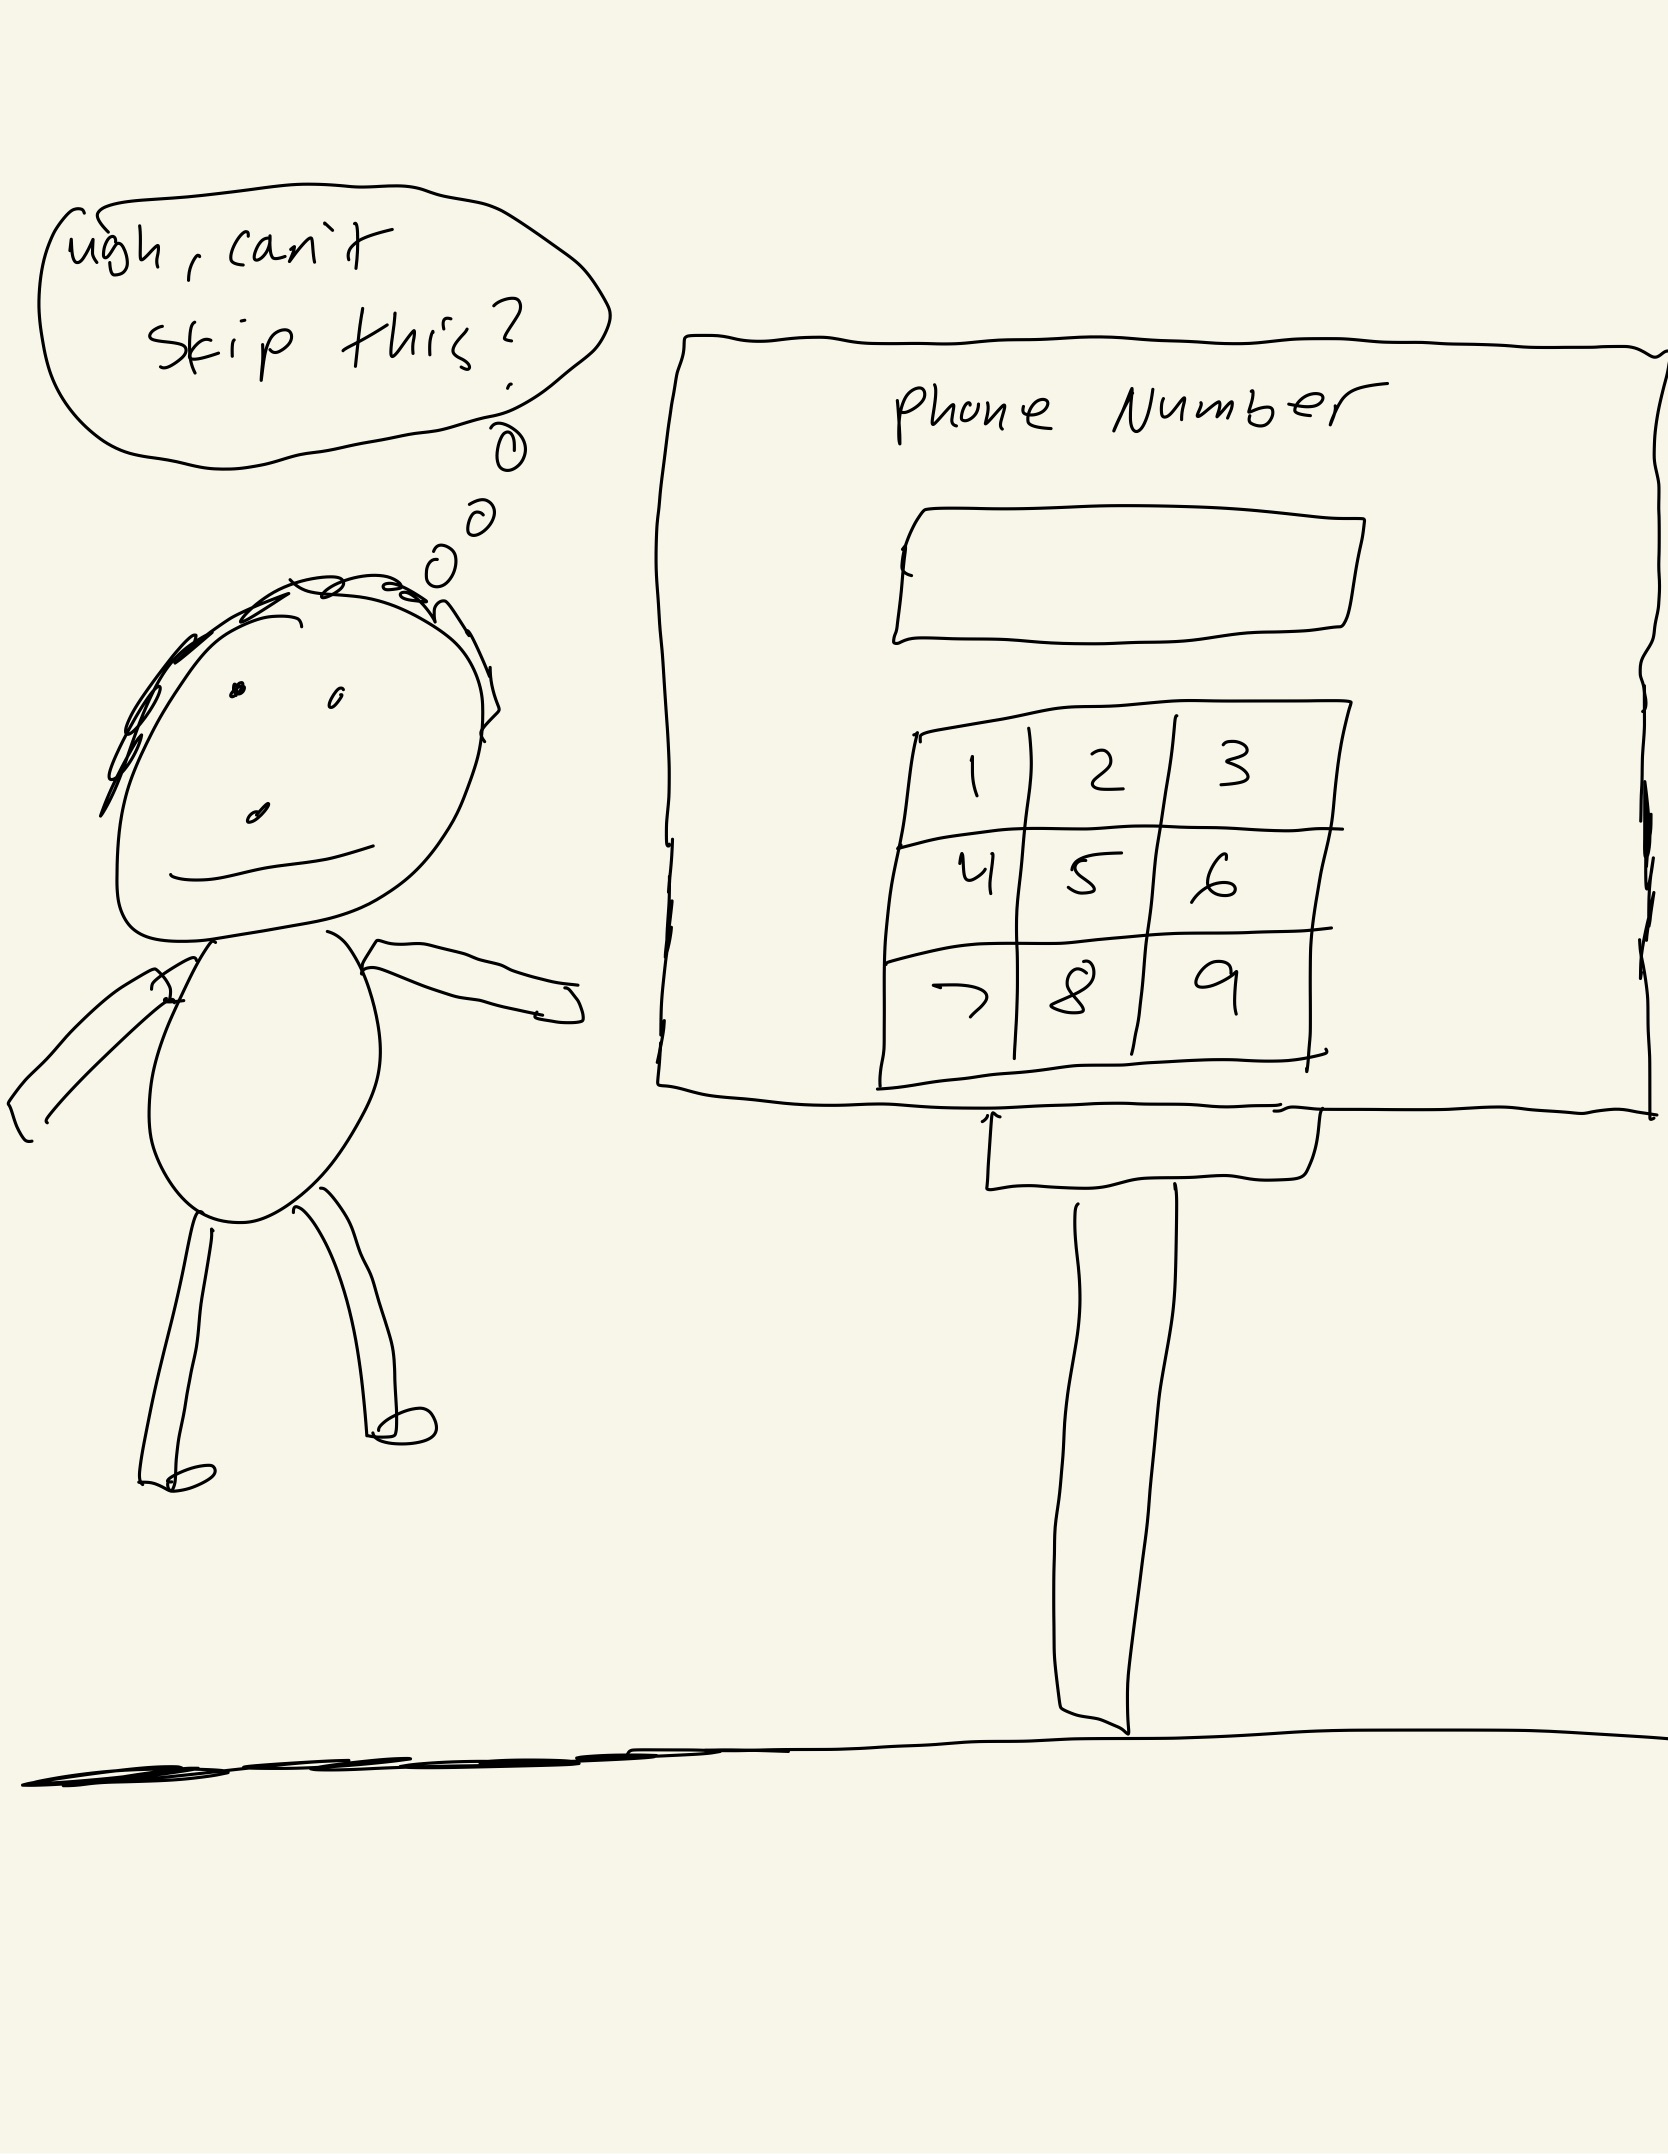 ugh, can't
skip this?
Phone Number
1 2 3
4 5 6
7 8 9